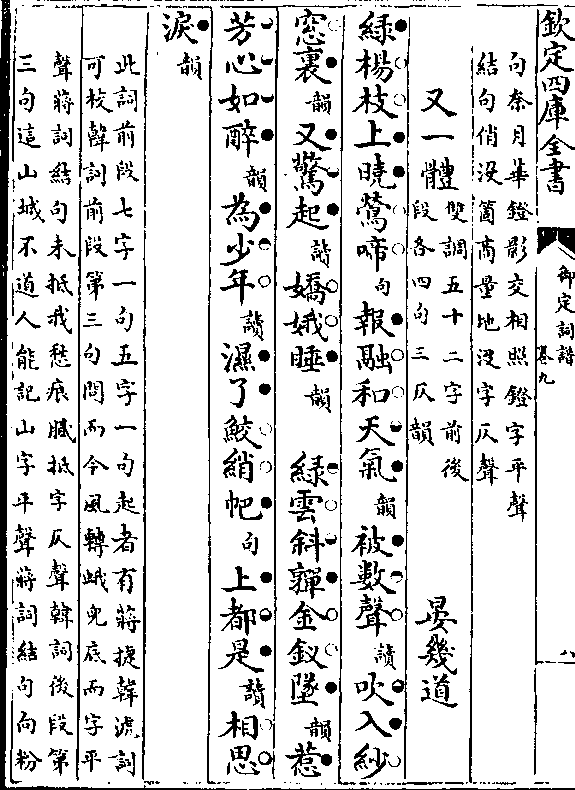 欽定四庫全書
御定詞譜
卷九
八
句奈月華鐙影交相照鐙字平聲
結句俏没箇商量地没字仄聲
又一體
雙調五十二字前後
段各四句三仄韻
晏幾道
緑楊枝上曉鶯啼句報融和天氣韻被數聲讀吹入紗
窓裏韻又驚起讀嬌娥睡韻 緑雲斜嚲金釵墜韻惹
芳心如醉韻為少年讀濕了鮫綃帊句上都是讀相思
淚韻
此詞前段七字一句五字一句起者有蔣捷韓淲詞
可校韓詞前段第三句問而今風轉蛾兒底而字平
聲蔣詞結句未抵我愁痕膩抵字仄聲韓詞後段第
三句這山城不道人能記山字平聲蔣詞結句向粉